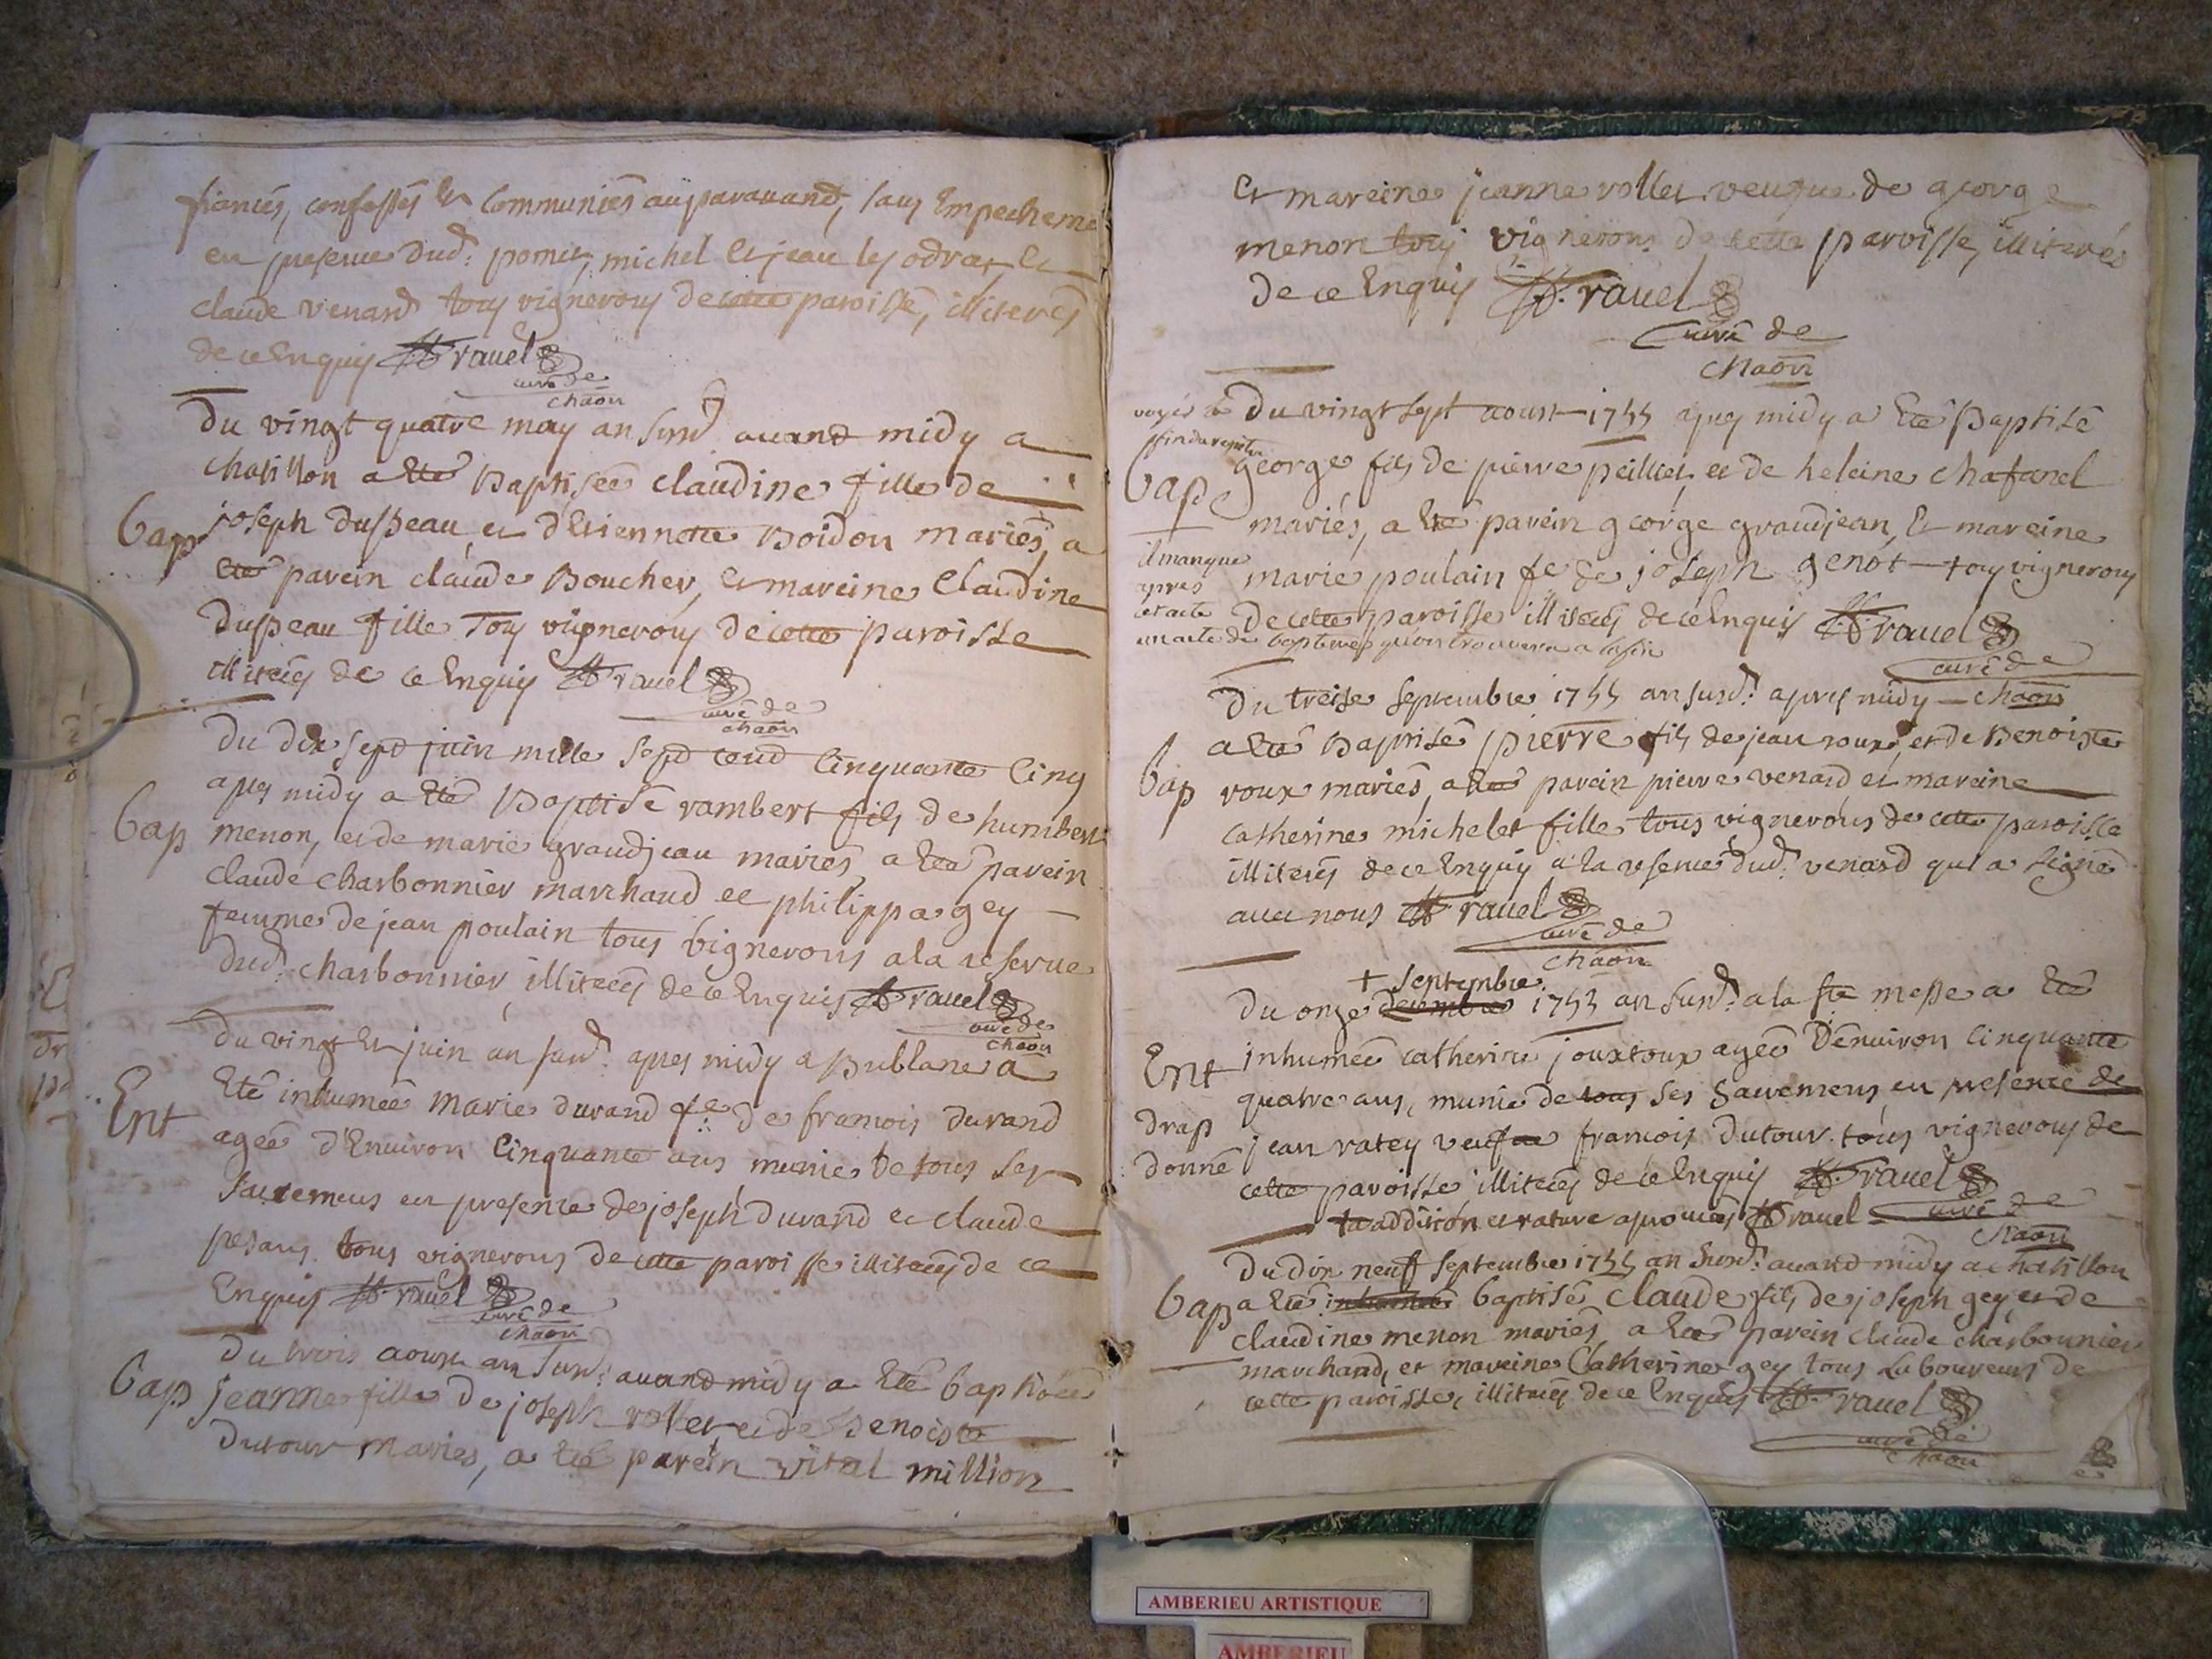 fiancés, confessés et Communiés auparavand, sans Empecheme
en presence dud: pomet, michel et jean les odras, et
claude venard tous vignerons de cette paroisse, illiterés
de ce Enquis ravel
curé de
chaon
Du vingt quatre may an susd avand midy a
chatillon a eté Baptisée claudine fille de
Bap
joseph duspeau et d'Etiennette Boidon mariés, a
eté parein claude Boucher, et mareine Claudine
duspeau fille Tous vignerons de cette paroisse
illiterés de ce Enquis ravel
curé de
chaon
Du dix sept juin mille sept cend Cinquante Cinq
apres midy a Eté Baptisé rambert fils de humbert
Bap
menon, et de marie grandjean mariés, a Eté parein
claude charbonnier marchand et philippa gey
femme de jean poulain tous vignerons a la reserve
dud: charbonnier, illiterés de ce Enquis ravel
curé de
chaon
Du vingt et juin an susd: apres midy a Bublane a
Ent
Eté inhumée marie durand fe de francois durand
agée d'Environ Cinquante ans munie de tous ses
sacremens en presence de joseph durand et claude
tous vignerons de cette paroisse illiterés de ce
Enquis ravel
curé de
chaon
Du trois aoust an susd: avand midy a Eté baptisée
Bap
jeanne fille de joseph rollet et de Benoiste
dutour mariés, a eté parein vital million
Et mareine jeanne rollet veufve de george
menon tous vignerons de cette paroisse, illiterés
de ce Enquis ravel
curé de
chaon
voyés la
fin du registre
Du vingt sept aoust 1755 apres midy a Eté Baptisé
george fils de pierre peillet, et de heleine chafanel
Bap
mariés, a Eté parein george grandjean, Et mareine
il manque
apres
cet acte
un acte de bapteme qu'on trouvera a la fin
marie poulain fe de joseph genot tous vignerons
de cette paroisse illiterés de ce Enquis ravel
curé de
chaon
Du treise septembre 1755 an susd: apres midy
a Eté Baptisé pierre fils de jean roux, et de Benoiste
Bap
roux mariés, a eté parein pierre venard et mareine
catherine michelet fille tous vignerons de cette paroisse
illiterés de ce Enquis a la reserve dud: venard qui a signé
avec nous ravel
curé de
chaon
+ septembre
Du onze decembre 1755 an susd: a la ste messe a Eté
Ent
inhumée catherine jouxtoux agée d'Environ Cinquante
quatre ans, munie de tous ses sacremens, en presence de
drap
donné
jean ratey francois dutour tous vignerons de
cette paroisse illiterés de ce Enquis ravel
curé de
chaon
la addition et rature aprouvés ravel
Du dix neuf septembre 1755 an susd: avand midy a chatillon
Bap
a Eté inhumée baptisé claude fils de joseph gey, et de
claudine menon mariés, a Eté parein claude charbonnier
marchand, et mareine Catherine gey tous laboureurs de
cette paroisse, illiterés de ce Enquis ravel
curé de
chaon
AMBERIEU ARTISTIQUE
AMBERIEU